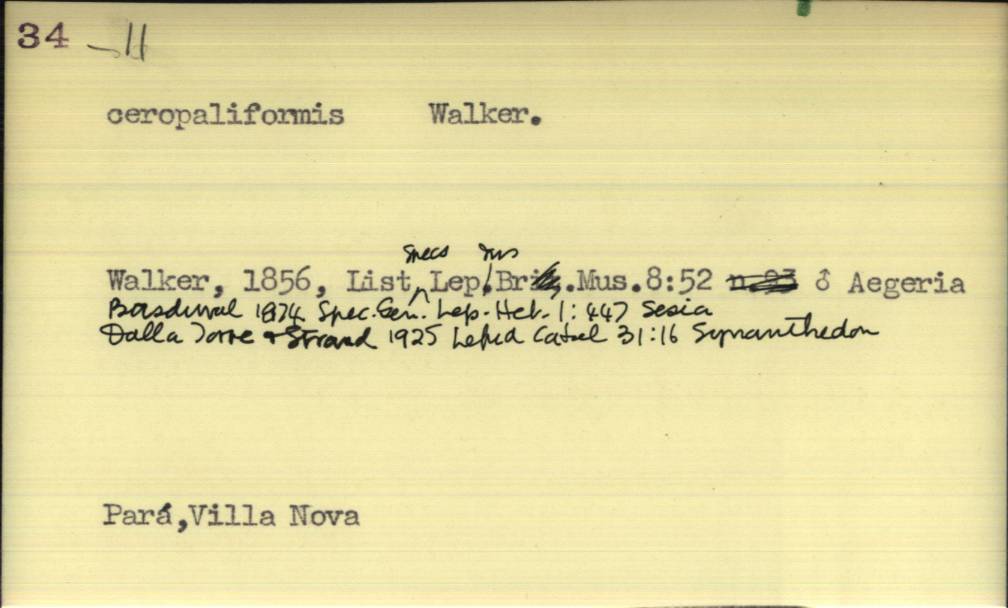 34 -11
ceropaliformis Walker.
specs Ins
Walker, 1856, List Lep. Br. Mus. 8:52 n.23 ♂ Aegeria
Boisduval 1874 Spec. Gen. Lep. Het. 1:447 Sesia
Dalla Torre & Strand 1925 Lepid Catal 31:16 Synanthedon
Pará,Villa Nova